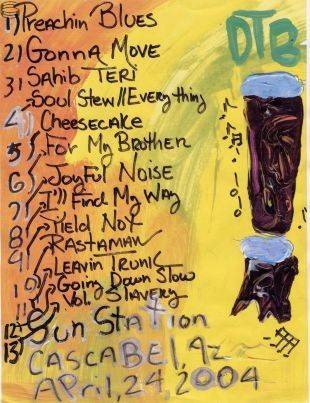 DTB
1) Preachin Blues
2) Gonna Move
3) Sahib Teri
Soul Stew//Everything
4) Cheesecake
5) For My Brother
6) Joyful Noise
7) I'll Find My Way
8) Yield Not
9) Rastaman
Leavin Trunk
10) Going Down Slow
11) Vol. Slavery
12) Sun Station
13) CASCABEL, Az
April, 24, 2004